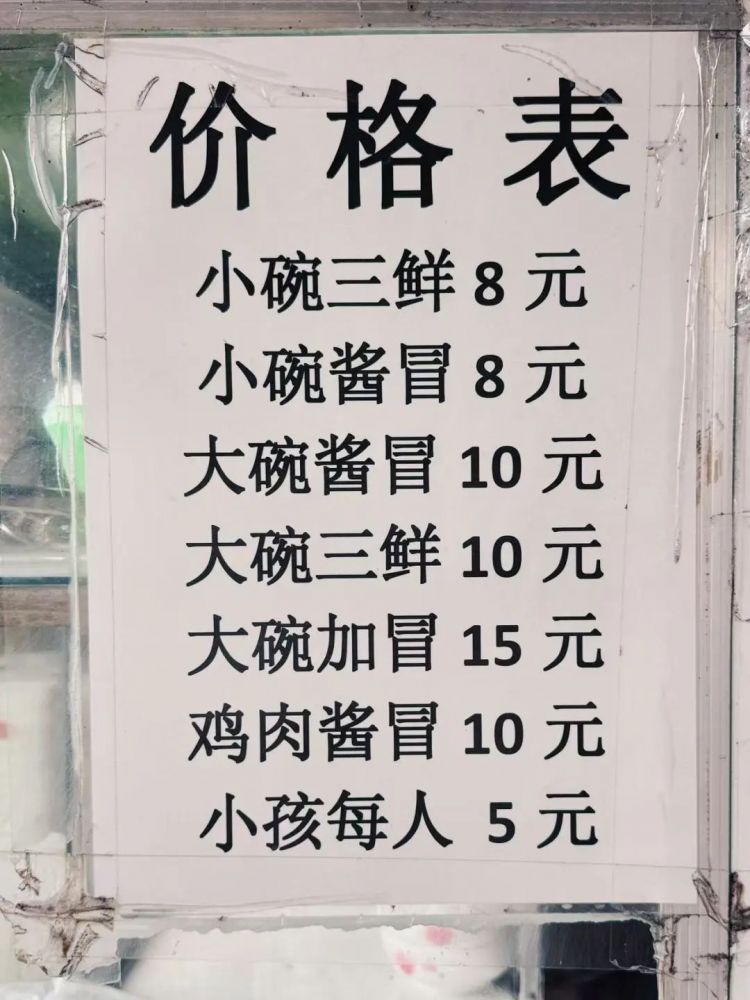 价格表
小碗三鲜 8 元
小碗酱冒 8 元
大碗酱冒 10 元
大碗三鲜 10 元
大碗加冒 15 元
鸡肉酱冒 10 元
小孩每人 5 元